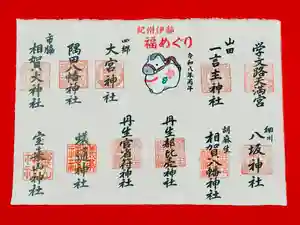 紀州伊都
福めぐり
令和八年丙午
学文路天満宮
山田
一言主神社
四郷
大宮神社
隅田八幡神社
市脇
相賀大神社
細川
八坂神社
胡麻生
相賀八幡神社
丹生都比売神社
丹生官省符神社
蟻通神社
宝来山神社